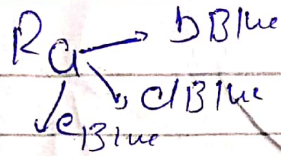 Ra
bBlue
dBlue
eBlue